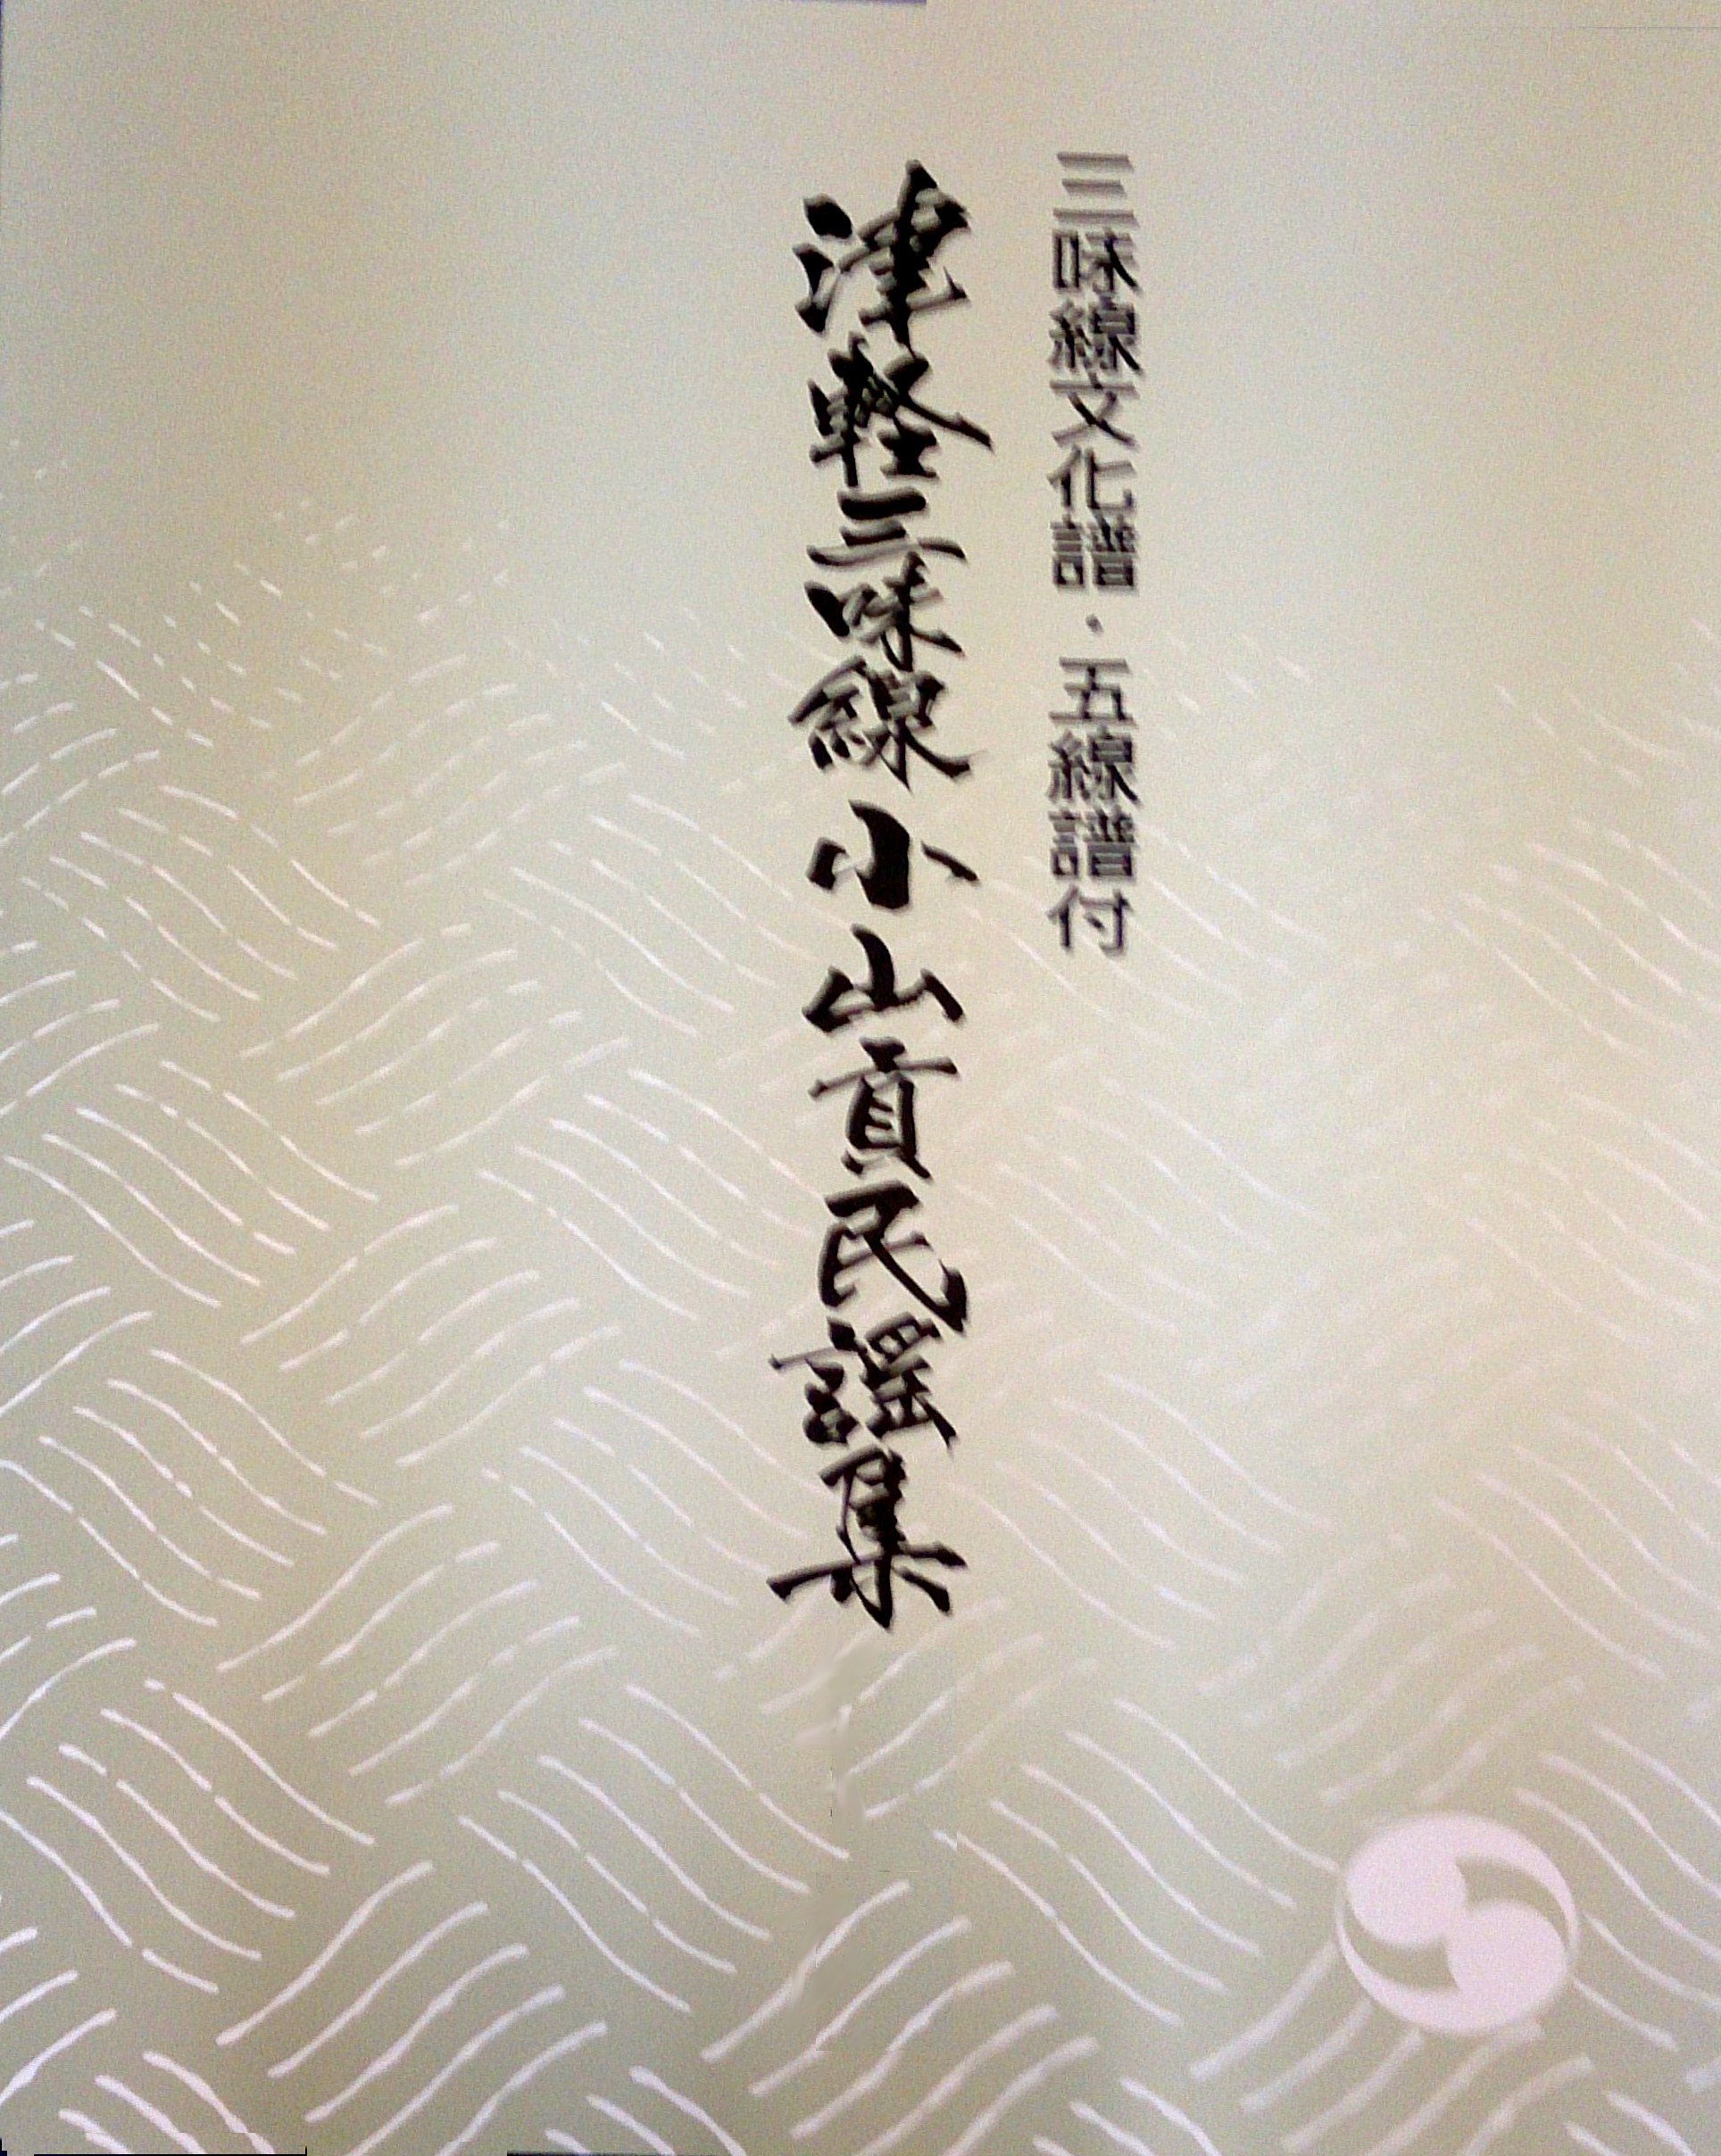 三味線文化譜・五線譜付
津軽三味線小山貢民謡集